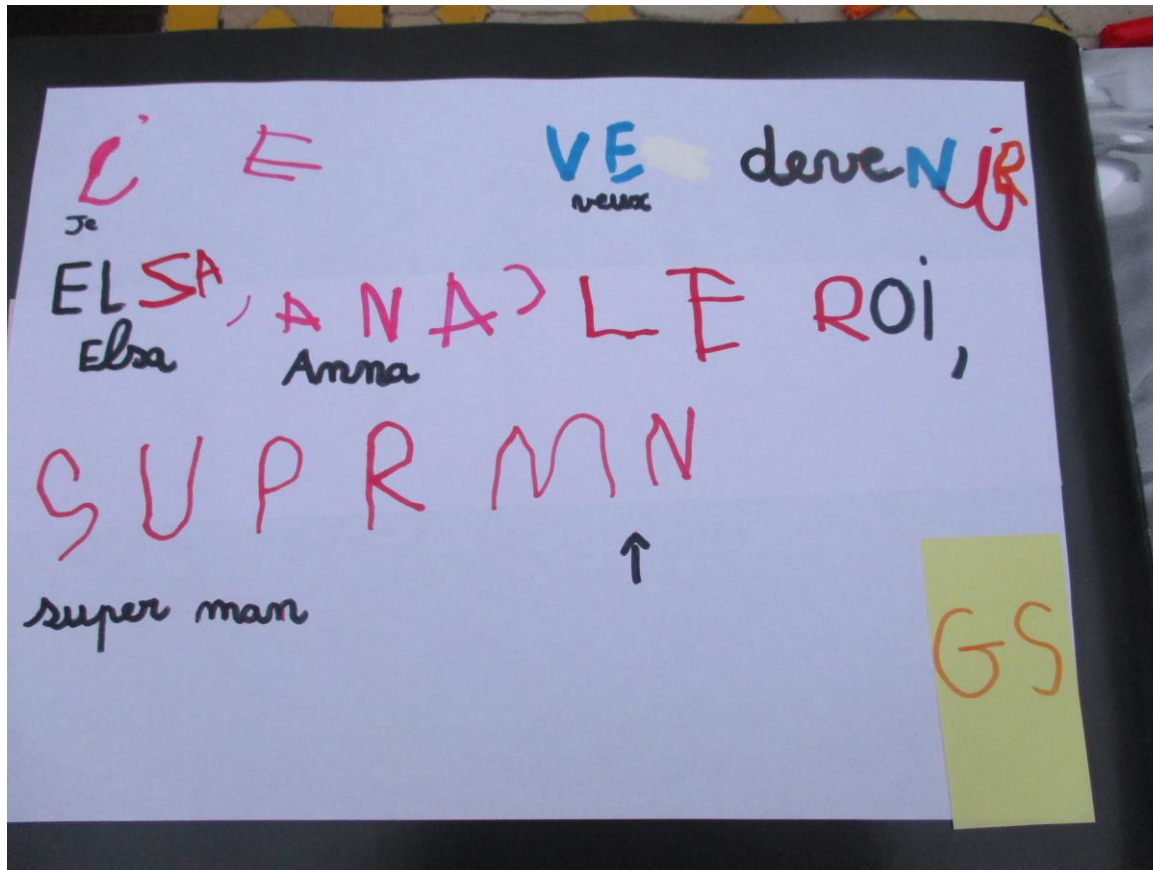 j E VE deveNiR
Je veux
ELSA, ANA, LE ROi,
Elsa Anna
SUPRMN
super man
GS